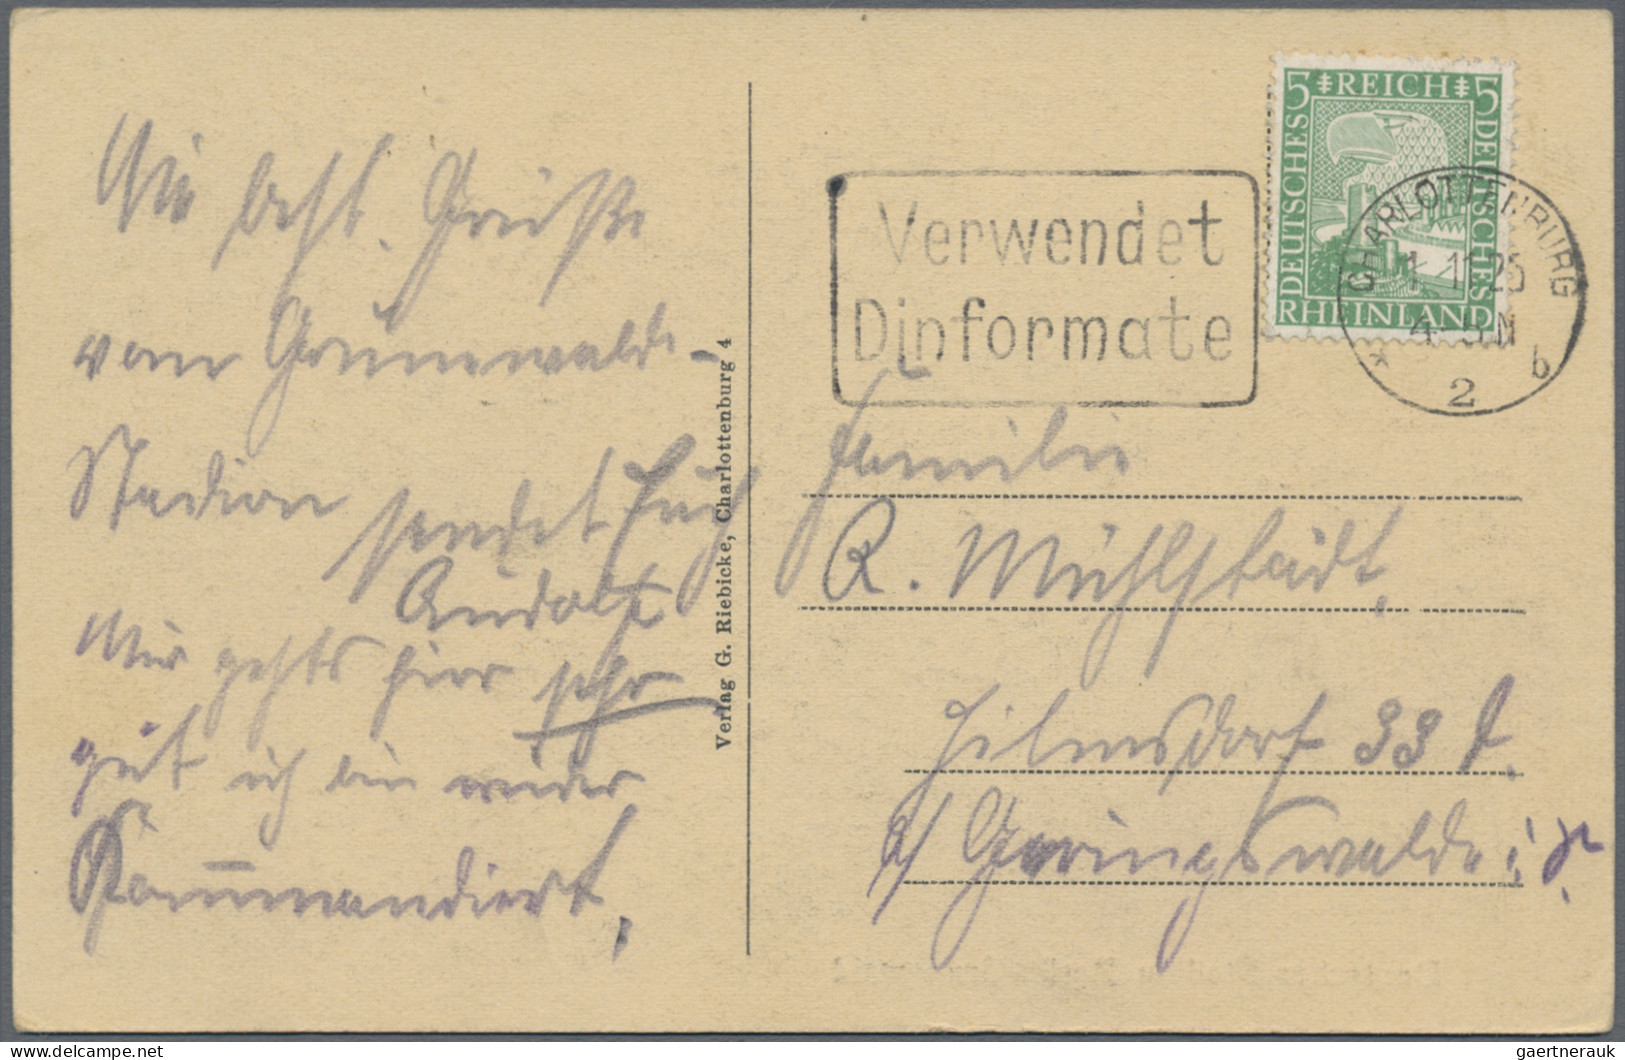 Die best. Grüße
vom Grunewald-
Stadion sendet Euch
Rudolf
Mir gehts hier sehr
gut ich bin wieder
Kommandiert.
Verlag G. Riebicke, Charlottenburg 4
Verwendet
Dinformate
5 REICH 5
DEUTSCHES
DEUTSCHES
RHEINLAND
CHARLOTTENBURG
1.11.25
4-5 N
* 2 b
Familie
R. Mühlstädt,
Hilmsdorf 33
b/ Geringswalde i.
gaertnerauk